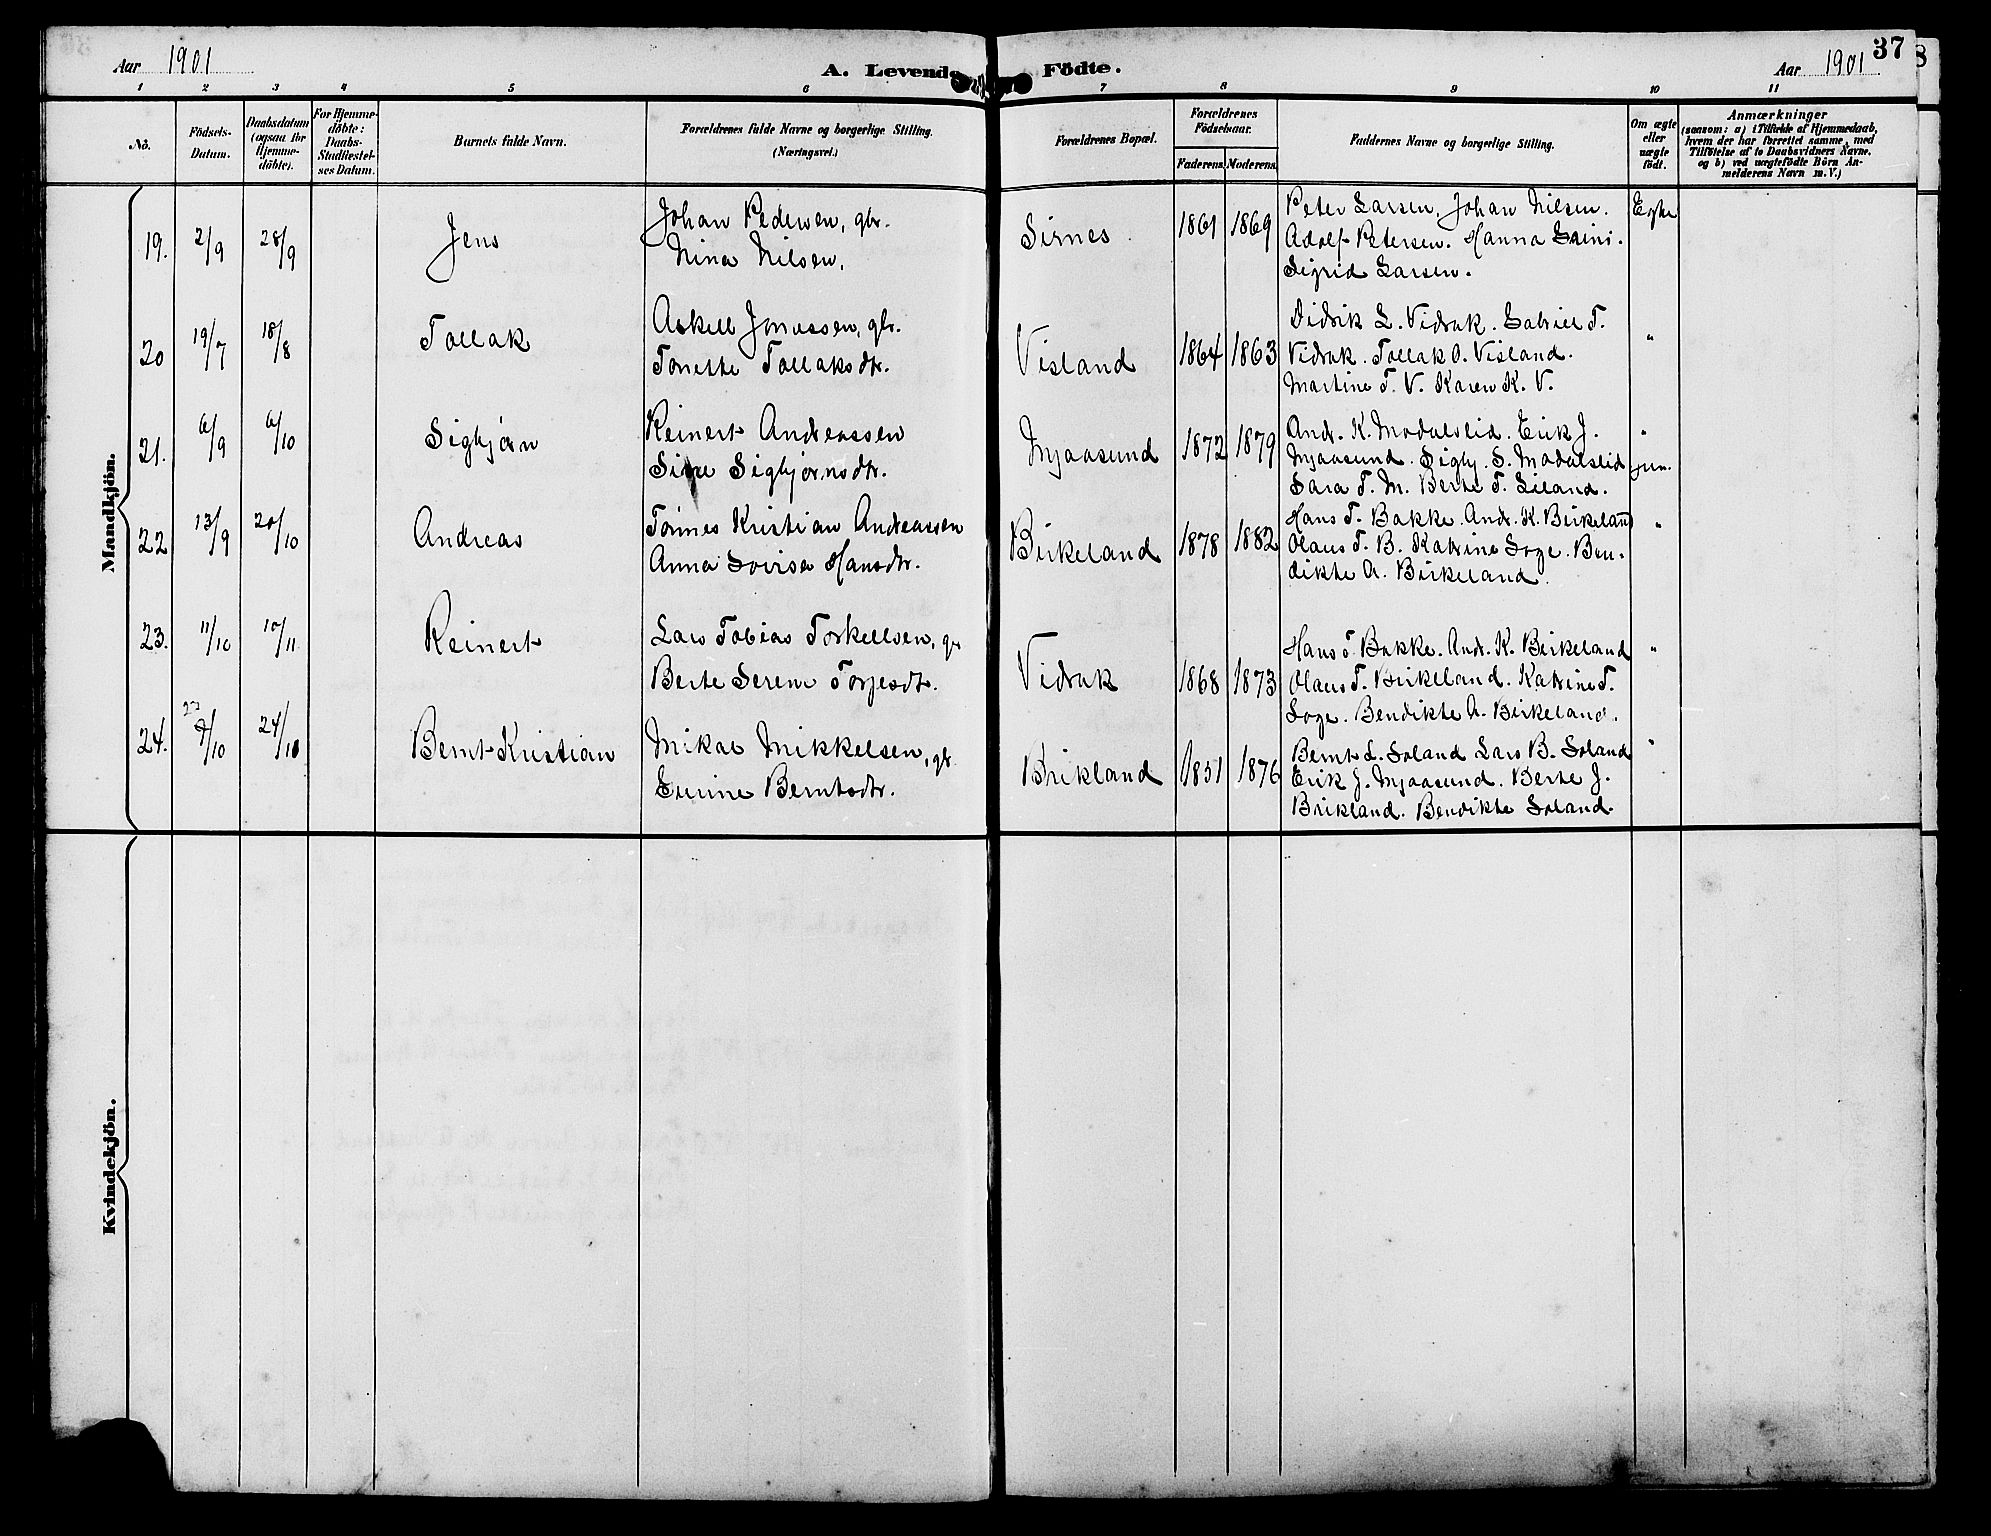 Aar 1901
A. Levende Födte.
Aar 1901
37
8
1 2 3 4 5 6 7 8 9 10 11
No.
Födsels-
Datum.
Daabsdatum
(ogsaa for
Hjemme-
döbte).
For Hjemme-
döbte:
Daabs-
Stadfæstel-
ses Datum.
Barnets fulde Navn.
Forældrenes fulde Navne og borgerlige Stilling.
(Næringsvei.)
Forældrenes Bopæl.
Forældrenes
Födselsaar.
Faderens. Moderens.
Faddernes Navne og borgerlige Stilling.
Om ægte
eller
uægte
födt.
Anmærkninger
(saasom: a) i Tilfælde af Hjemmedaab,
hvem der har forrettet samme, med
Tilföielse af to Daabsvidners Navne,
og b) ved uægtefödte Börn An-
melderens Navn m. V.)
Mandkjön.
19. 2/9 28/9 Jens
Johan Pedersen, gbr.
Nina Nilsen,
Sirnes 1861 1869
Peter Larsen, Johan Nilsen.
Adolf Petersen. Hanna
Sigrid Larsen.
Egte
20 19/7 18/8 Tollak
Askell Jonassen, gbr.
Tonette Tollaksdtr.
Visland 1864 1863
Didrik L. Vidrak. Gabriel T.
Vidrak. Tollak O. Visland.
Martine T. V. Karen K. V.
"
21. 6/9 6/10 Sigbjørn
Reinert Andreassen
Sigbjørnsdtr.
Mjaasund 1872 1879
Andr. K. Modalslid. Erik J.
Mjaasund. Sigbj. S. Modalslid
Sara T. M. Berte T. Liland.
"
22 13/9 20/10 Andreas
Tønnes Kristian Andreassen
Anna Lovise Hansdtr.
Birkeland 1878 1882
Hans T. Bakke. Andr. K. Birkeland
Olaus T. B. Katrine Loge. Ben-
dikte A. Birkeland.
"
23. 11/10 10/11 Reinert
Lars Tobias Torkellsen, gbr
Berte Serene Torjesdtr.
Vidrak 1868 1873
Hans T. Bakke. Andr. K. Birkeland
Olaus T. Birkeland. Katrine T.
Loge. Bendikte A. Birkeland.
"
24. /10 24/10 Bernt Kristian
Mikal Mikkelsen, gbr
Gurine Berntsdtr.
Brikland 1851 1876
Bernt L. Soland Lars B. Soland
Erik J. Mjaasund. Berte J.
Brikland. Bendikte Soland
"
Kvindekjön.